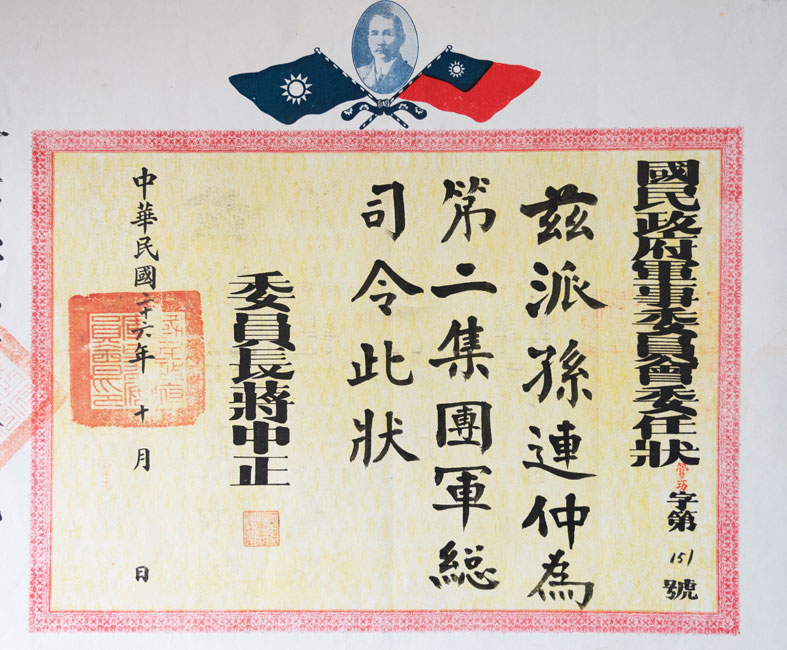 國民政府軍事委員會委任狀
字第151號
茲派孫連仲為
第二集團軍総
司令此狀
委員長蔣中正
中華民國二十六年十月 日